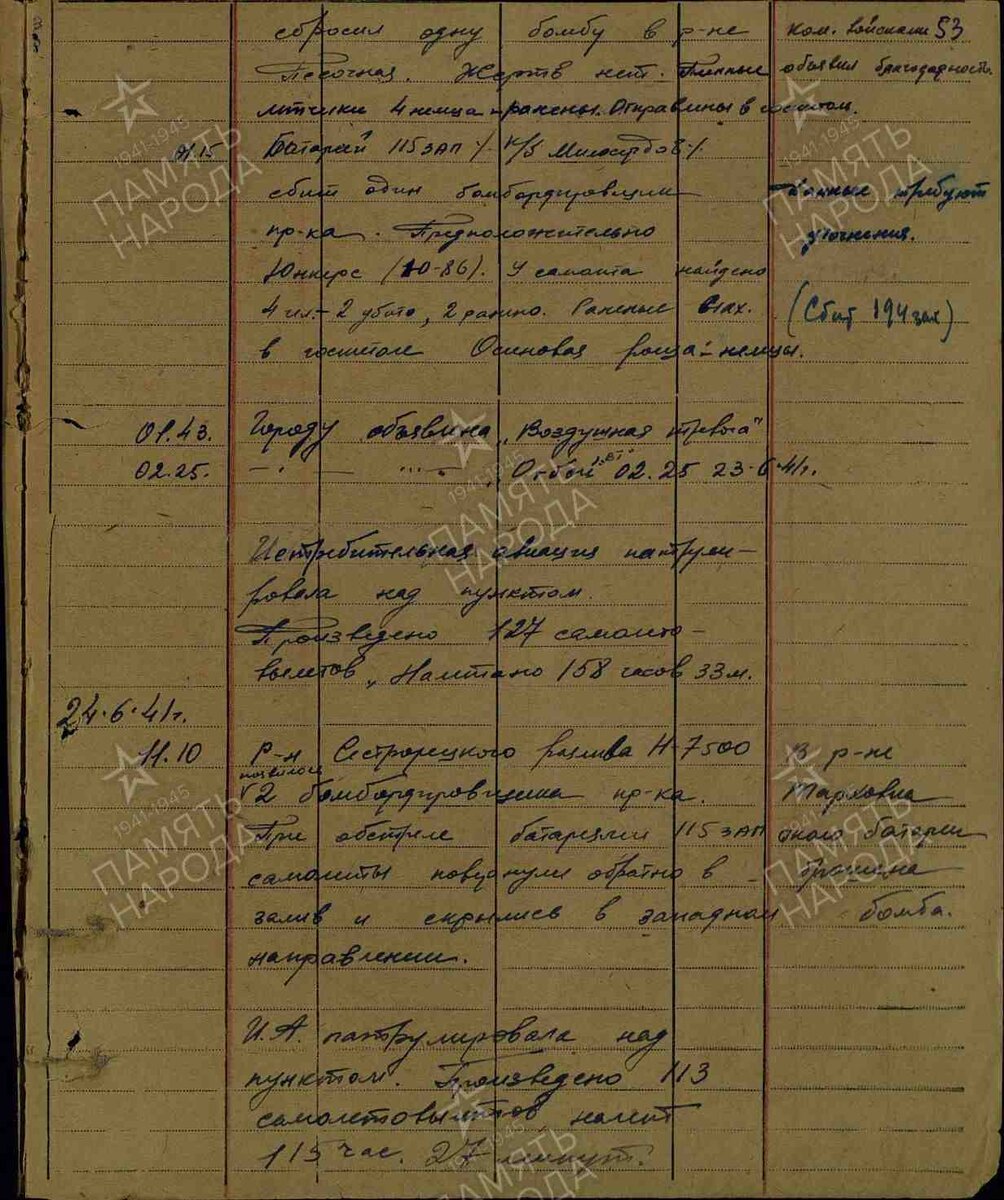 сбросил одну бомбу в р-не
Песочная. Жертв нет. Пленные
летчики 4 немца - ранены. Отправлены в госпиталь.
ком. войсками 53
объявил благодарность.
01.15
Батареей 115 зап /. к/б
сбит один бомбардировщик
пр-ка. Предположительно
Юнкерс (Ю-86). У самолета найдено
4 чел.- 2 убито, 2 ранено. Раненые нах.
в госпитале Осиновая роща - немцы.
Данные требуют
уточнения.
(Сбит 194 зап)
01.43. Городу объявлена „Воздушная тревога"
02.25. — " — — " — „Отбой „ВТ" 02.25 23.6.41г.
Истребительная авиация патрули-
ровала над пунктом.
Произведено 127 самолето-
вылетов, Налетано 158 часов 33 м.
24.6.41г.
11.10 Р-н Сестрорецкого разлива Н-7500
появилось
2 бомбардировщика пр-ка.
При обстреле батареями 115 зап
самолеты повернули обратно в
залив и скрылись в западном
направлении.
В р-не
Тарховка
около батареи
брошена
бомба.
И.А. патрулировала над
пунктом. Произведено 113
самолетовылетов, налет
113 час. 27 минут.
1941-1945
ПАМЯТЬ
НАРОДА
1941-1945
ПАМЯТЬ
НАРОДА
1941-1945
ПАМЯТЬ
НАРОДА
1941-1945
ПАМЯТЬ
НАРОДА
1941-1945
ПАМЯТЬ
НАРОДА
1941-1945
ПАМЯТЬ
НАРОДА